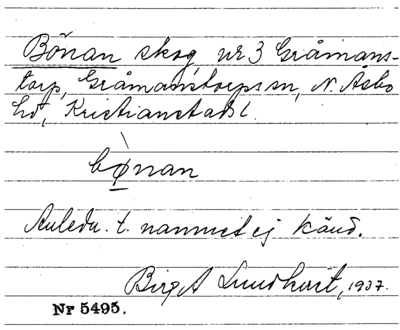 Bönan skog, nr 3 Gråmans-
torp, Gråmanstorps sn, N. Åsbo
hd, Kristianstads l.
bønan
Anledn. t. namnet ej känd.
Birgit Lundkvist, 1937.
Nr 5495.